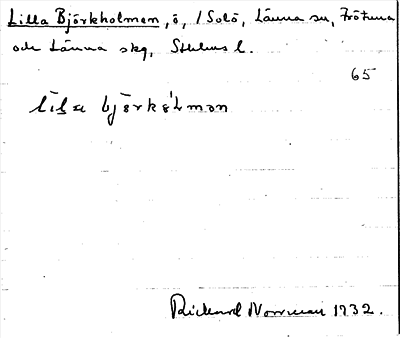 Lilla Björkholmen, ö, / Solö, Länna sn, Frötuna
och Länna skg, Sthlms l.
65
lila björkölmön
Rickard Norrman 1932.